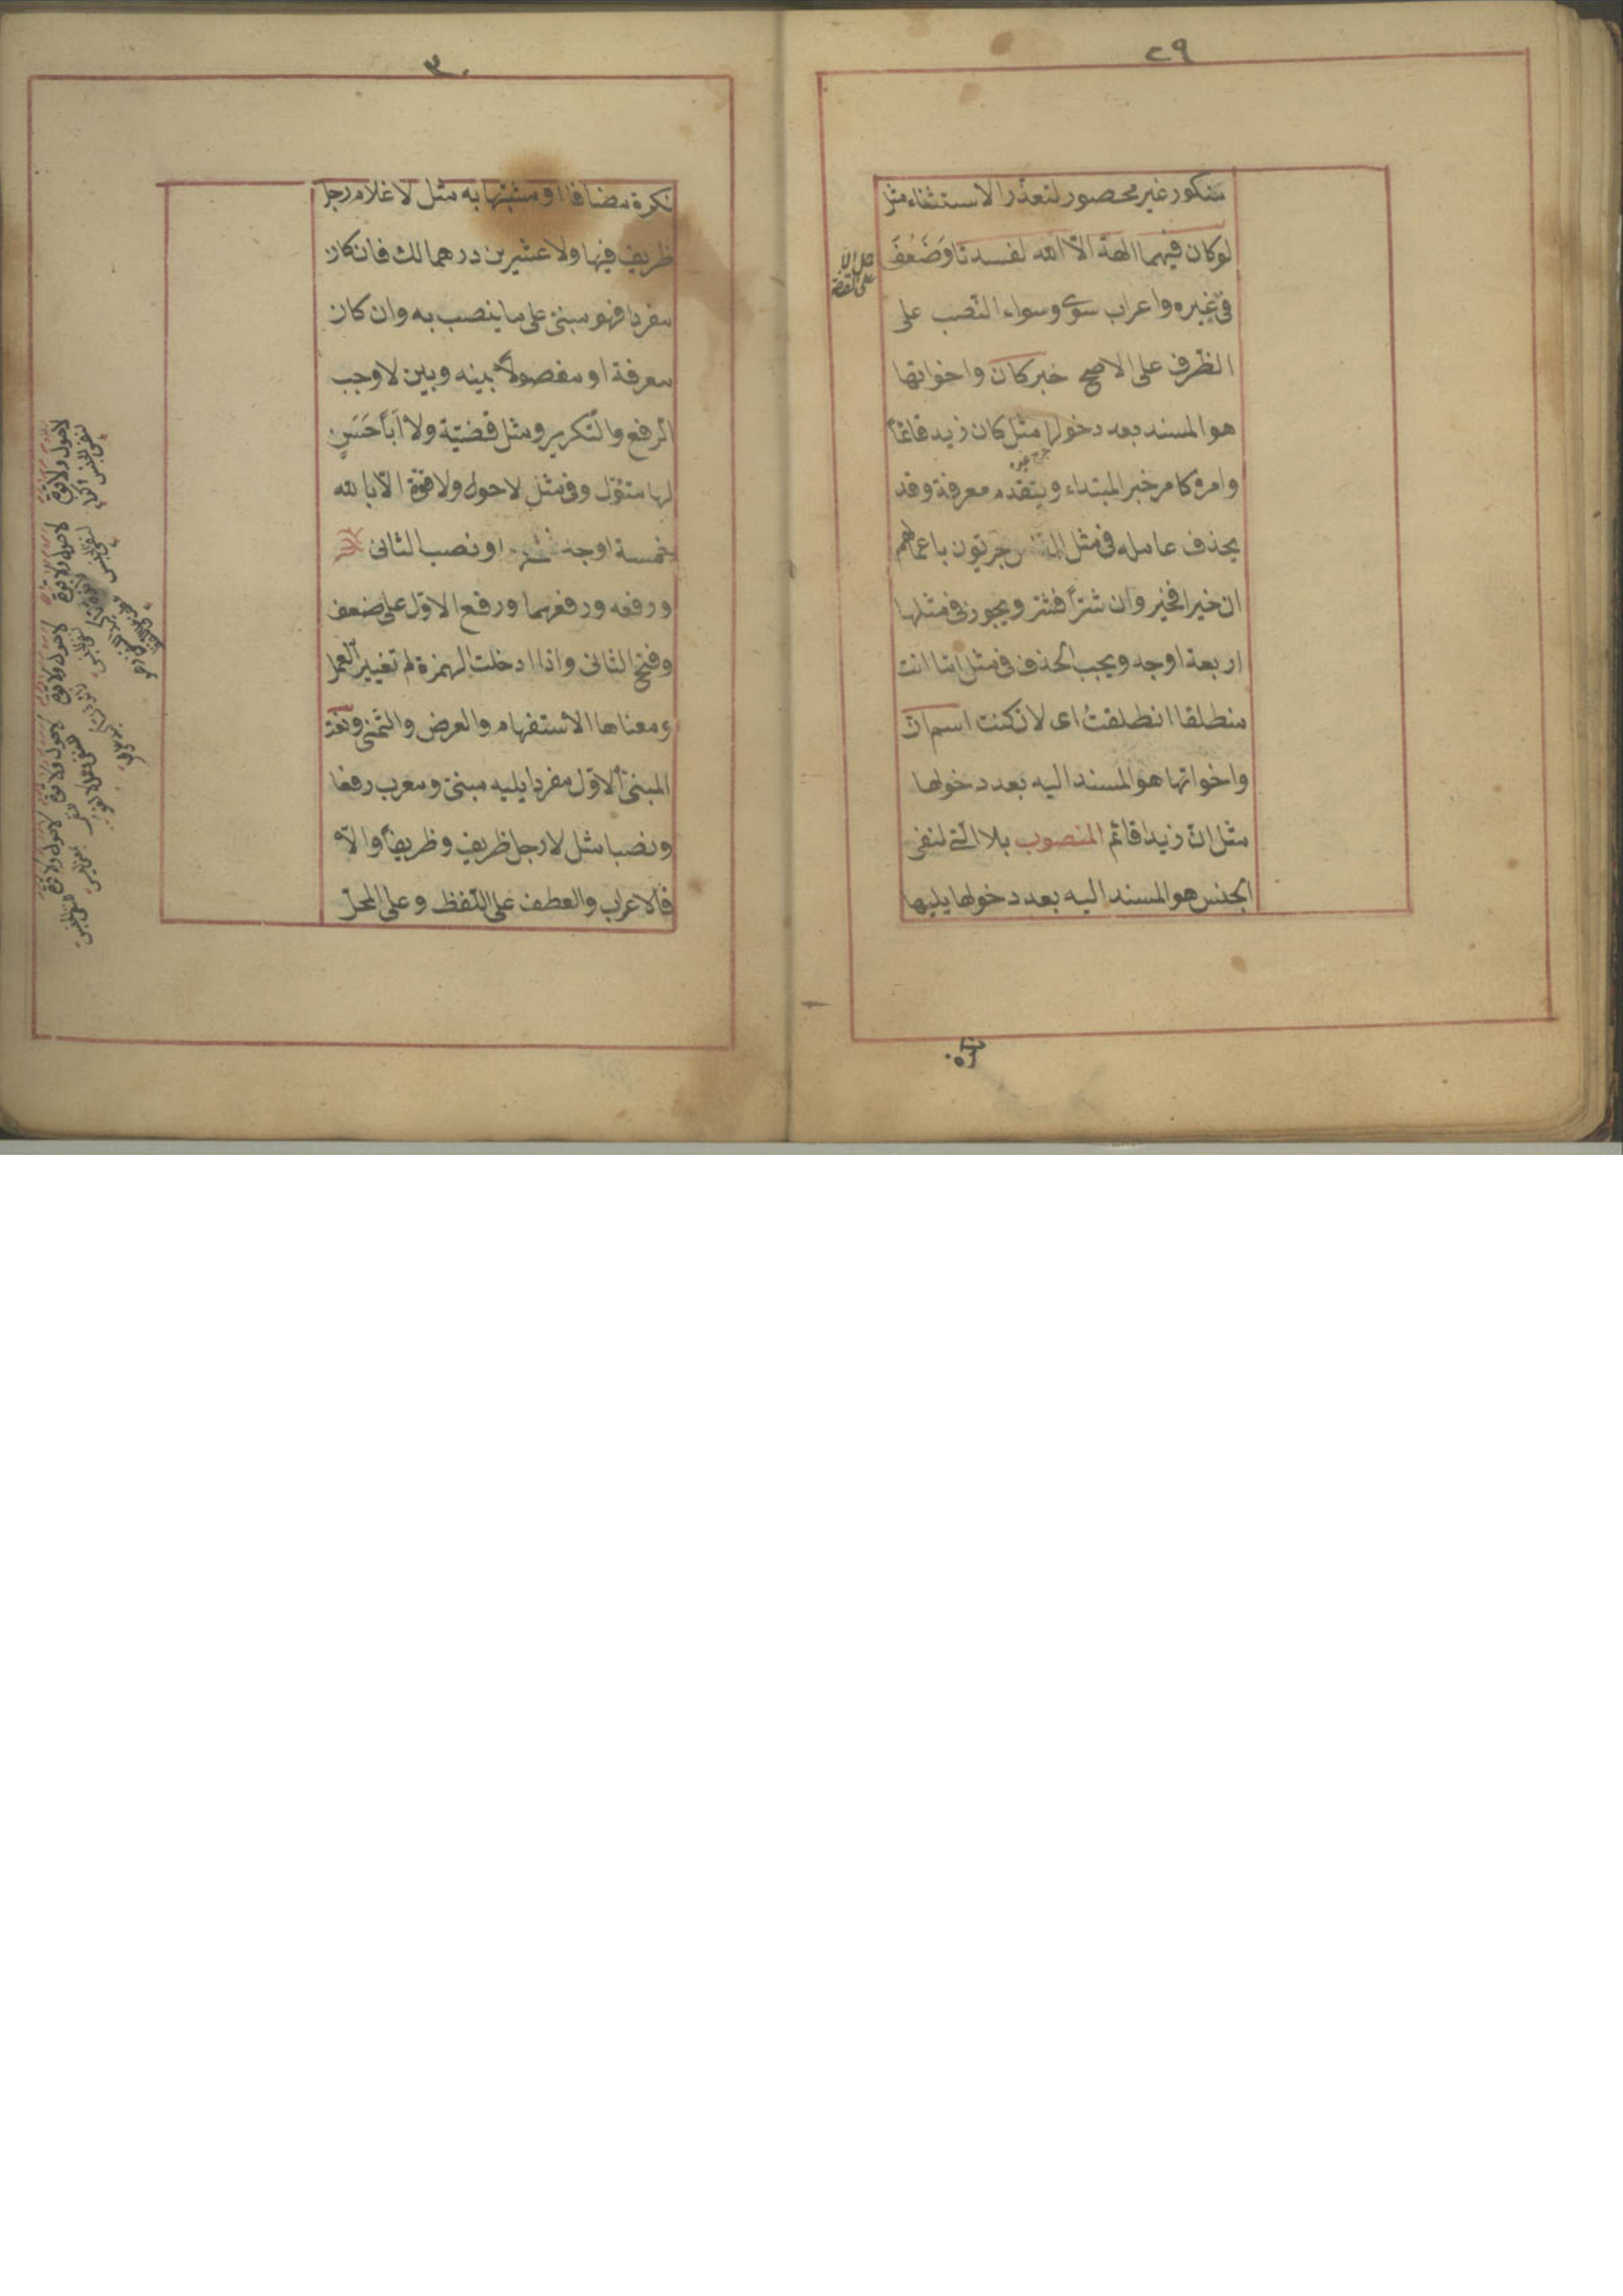 ٢٩
منكور غير محصور لتعذّر الاستثناء مثل
لوكان فيهما الهة الّا الله لفسدتا وَضَعُفَ
فى غيره واعراب سوى وسواء النّصب على
الظّرف على الاصحّ خبر كان واخواتها
هو المسند بعد دخولها مثل كان زيد قائمًا
وامره كامر خبر المبتداء ويتقدم معرفة وقد
يحذف عامله فى مثل النّاس مجزيّون باعمالهم
ان خيرا فخير وان شرّاً فشر ويجوز فى مثلها
اربعة اوجه ويجب الحذف فى مثل امّا انت
منطلقا انطلقتُ اى لان كنت اسم انّ
واخواتها هو المسند اليه بعد دخولها
مثل انّ زيدا قائم المنصوب بلا الّتى لنفى
الجنس هو المسند اليه بعد دخولها يليها
نكرة
٣٠
نكرة مضافا او مشبّها به مثل لا غلام رجل
ظريف فيها ولا عشرين درهما لك فان كان
مفردا فهو مبنىّ على ما ينصب به وان كان
معرفة او مفصولاً بينه وبين لا وجب
الرّفع والتّكرير ومثل قضيّة ولا اَبَا حَسَنٍ
لها متئوّل وفى مثل لا حول ولا قوّة الّا بالله
خمسة اوجه او نصب الثانى
ورفعه ورفعهما ورفع الاوّل على ضعف
وفتح الثانى واذا ادخلت الهمزة لم تغيير العمل
ومعناها الاستفهام والعرض والتّمنى ونعت
المبنىّ الاوّل مفردا يليه مبنىّ ومعرب رفعا
ونصبا مثل لا رجل ظريف وظريفاً والّا
فالاعراب والعطف على اللّفظ وعلى المحلّ
لا حول ولا قوة
لا حول ولا قوة
لا حول ولا قوة
لا حول ولا قوة
لا حول ولا قوة